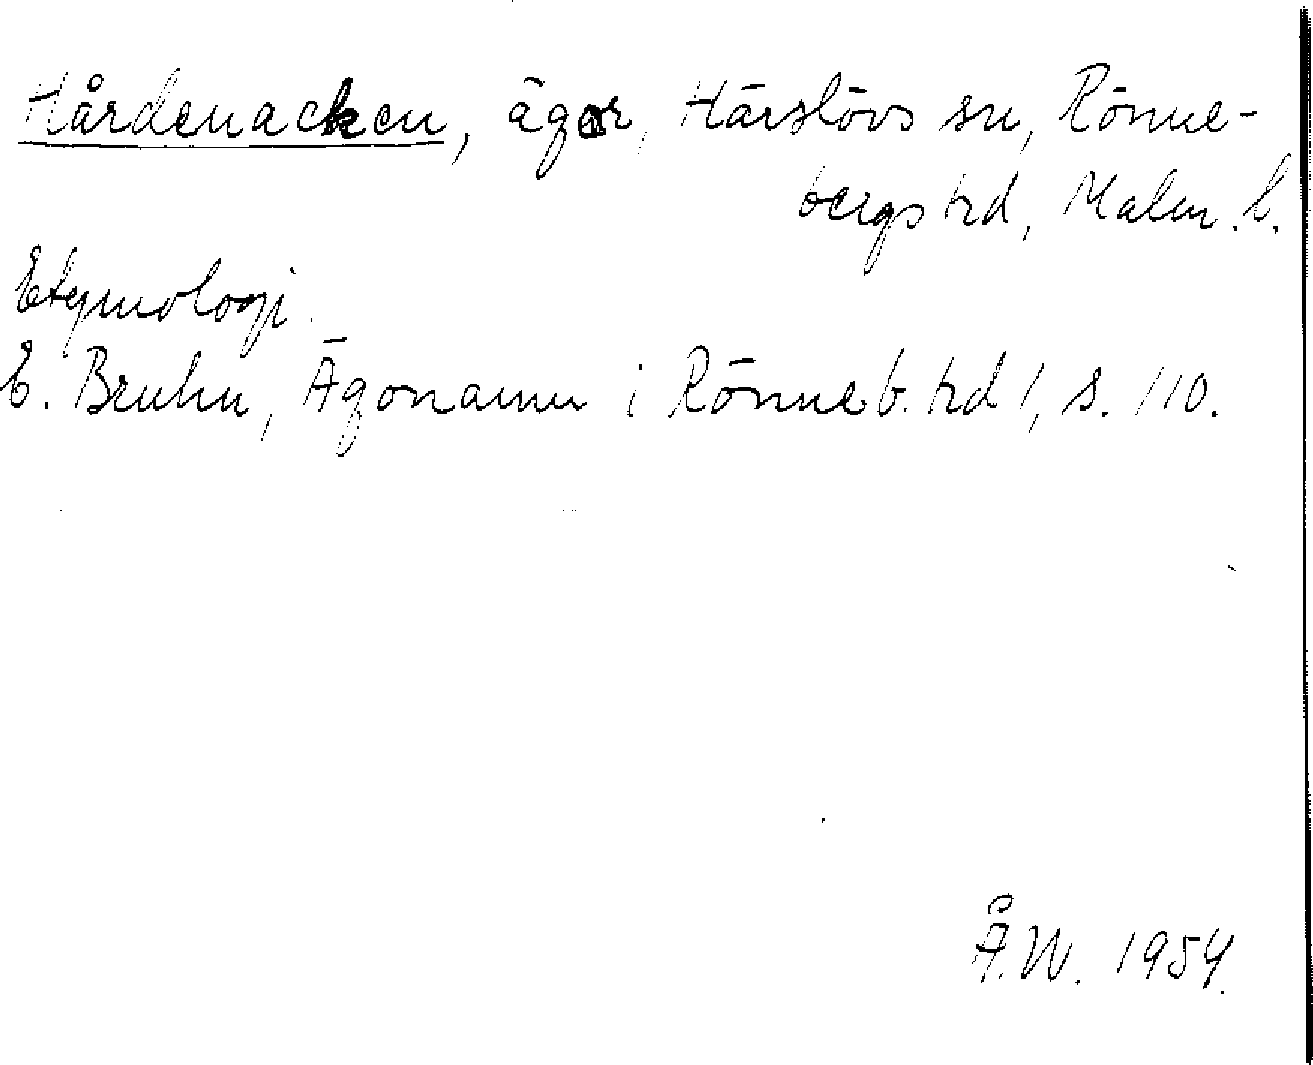 Hårdenacken, ägor, Härslövs sn, Rönne-
bergs hd, Malm. l.
Etymologi.
E. Bruhn, Ägonamn i Rönneb. hd 1, s. 110.
Å.W. 1954.